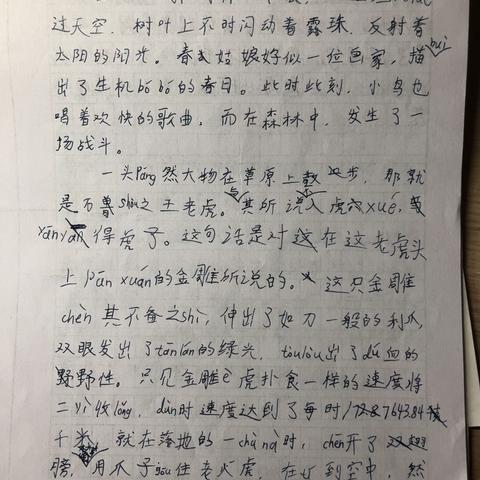 过天空，树叶上不时闪动着露珠，反射着
太阳的阳光。春天姑娘好似一位画家，描huì
出了生机bó bó的春日。此时此刻，小鸟也
唱着欢快的歌曲，而在森林中，发生了一
场战斗。
一头páng然大物在草原上散步，那就
是百兽shòu之王老虎。与其所说入虎穴xué，
yān yān得虎子。这句话是对这在这老虎头
上pán xuán的金雕所说的。这只金雕
chèn其不备之shì，伸出了如刀一般的利爪，
双眼发出了tān lán的绿光，tòu lòu出了dú血的
野野性。只见金雕è虎扑食一样的速度将
二yì收lǒng，dùn时速度达到了每时
千米，就在落地的一chà nà时，chēn开了双翅
膀，用爪子gōu住老火虎，在飞到空中，然